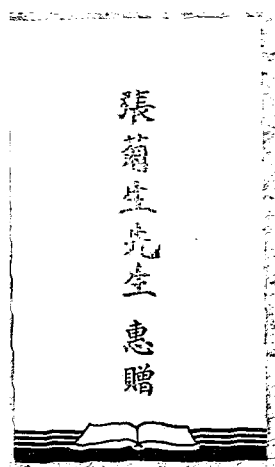 張蘭生先生 惠贈